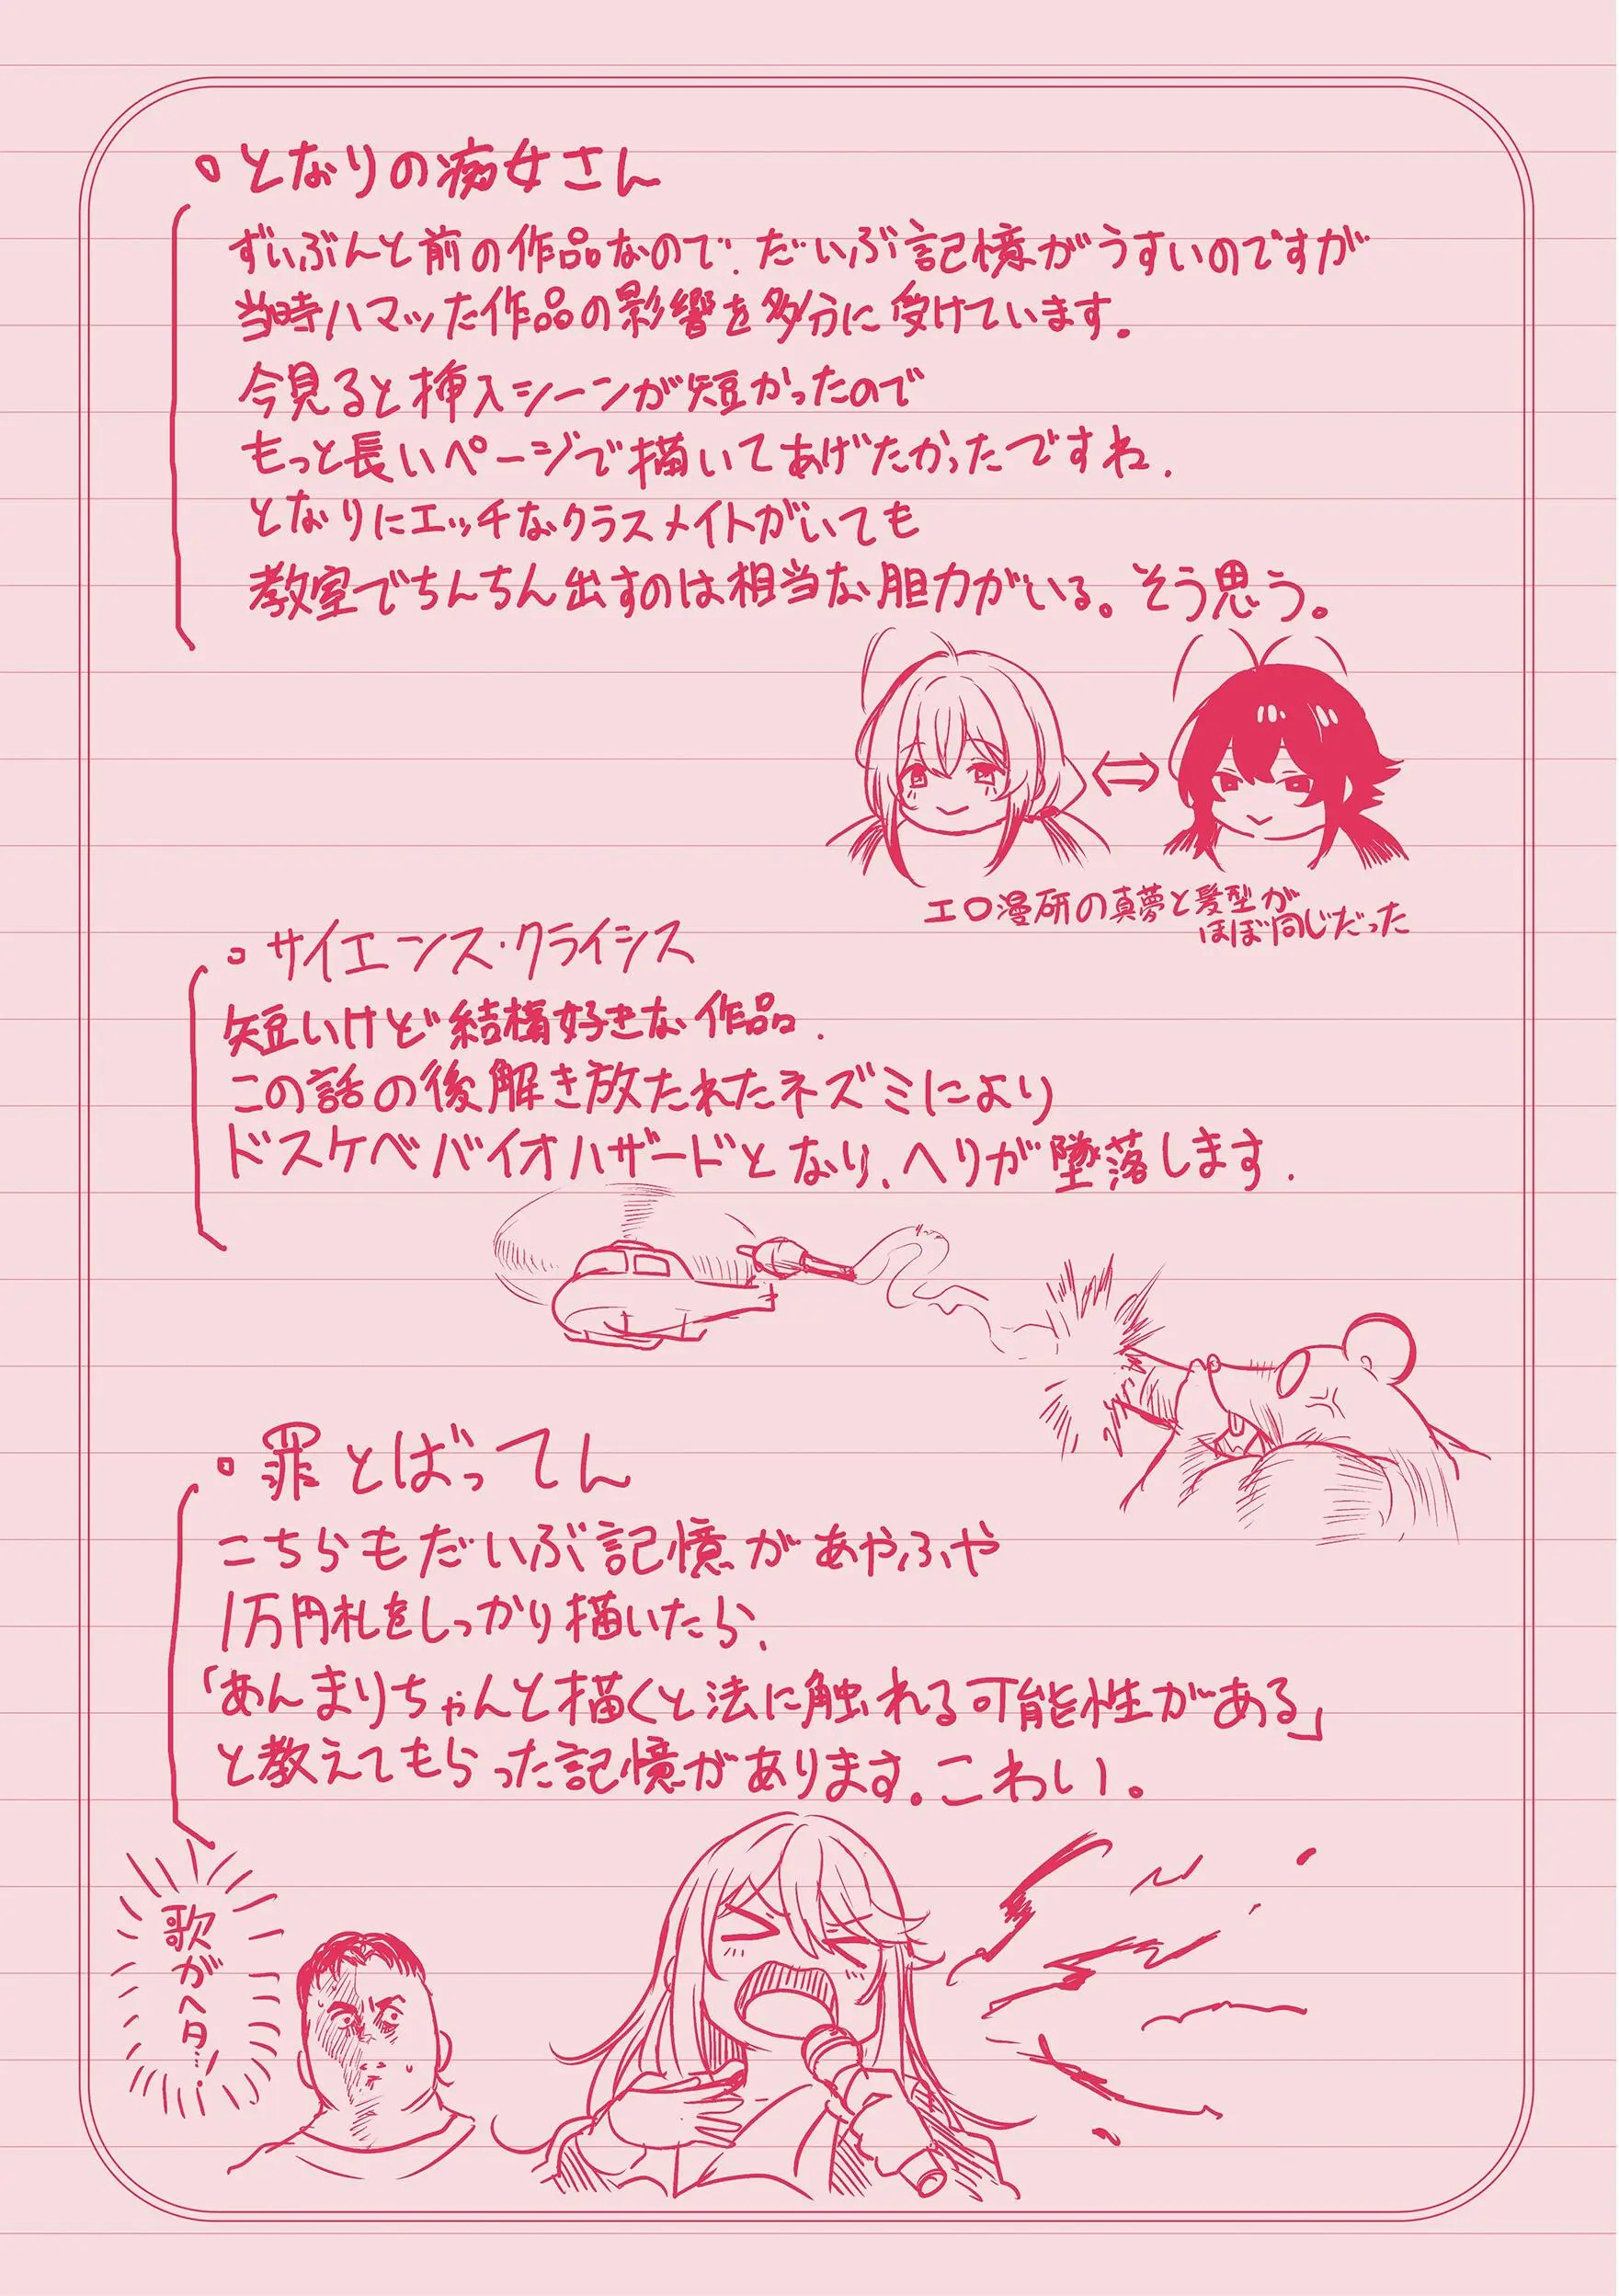 ・となりの痴女さん
ずいぶんと前の作品なので、だいぶ記憶がうすいのですが
当時ハマッた作品の影響を多分に受けています。
今見ると挿入シーンが短かったので
もっと長いページで描いてあげたかったですね、
となりにエッチなクラスメイトがいても
教室でちんちん出すのは相当な胆力がいる。そう思う。
エロ漫研の真夢と髪型が
ほぼ同じだった
・サイエンス・クライシス
短いけど結構好きな作品、
この話の後解き放たれたネズミにより
ドスケベバイオハザードとなり、ヘリが墜落します、
・罪とばってん
こちらもだいぶ記憶があやふや
1万円札をしっかり描いたら、
「あんまりちゃんと描くと法に触れる可能性がある」
と教えてもらった記憶があります。こわい。
歌がヘタ…!